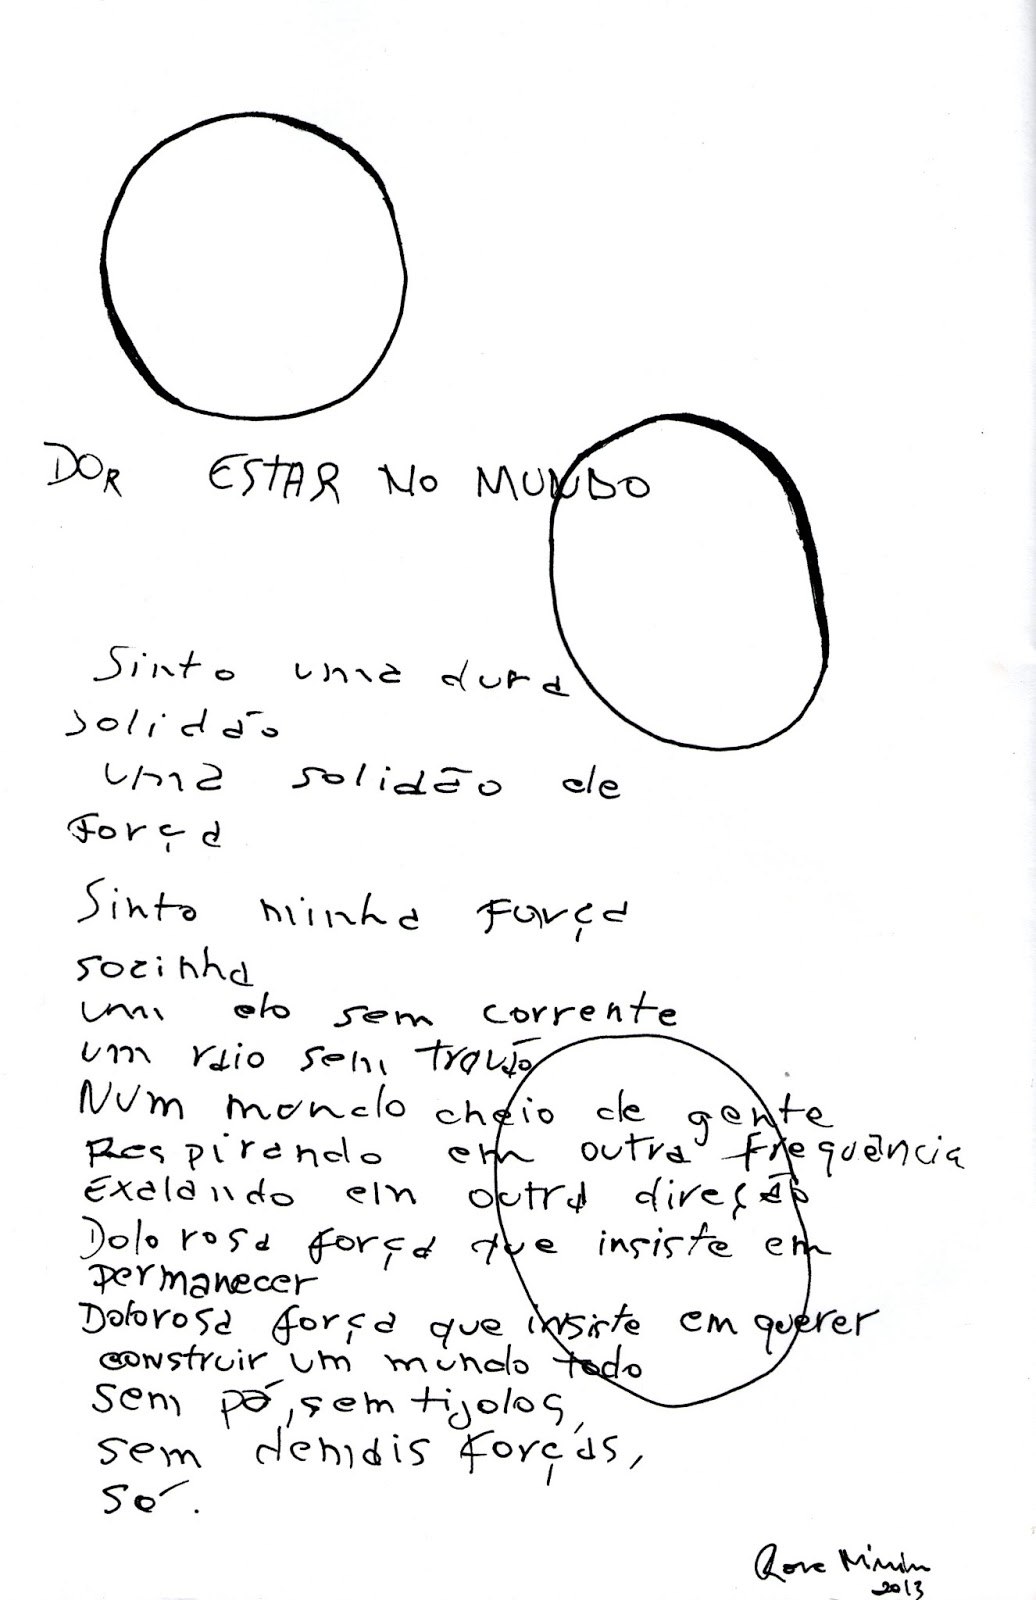 DOR ESTAR NO MUNDO
Sinto uma dura
solidão
uma solidão de
força
Sinto minha força
sozinha
um elo sem corrente
um raio sem trovão
Num mundo cheio de gente
Respirando em outra frequência
Exalando em outra direção
Dolorosa força que insiste em
permanecer
Dolorosa força que insiste em querer
construir um mundo todo
sem pó, sem tijolos,
sem demais forças,
só.
2013